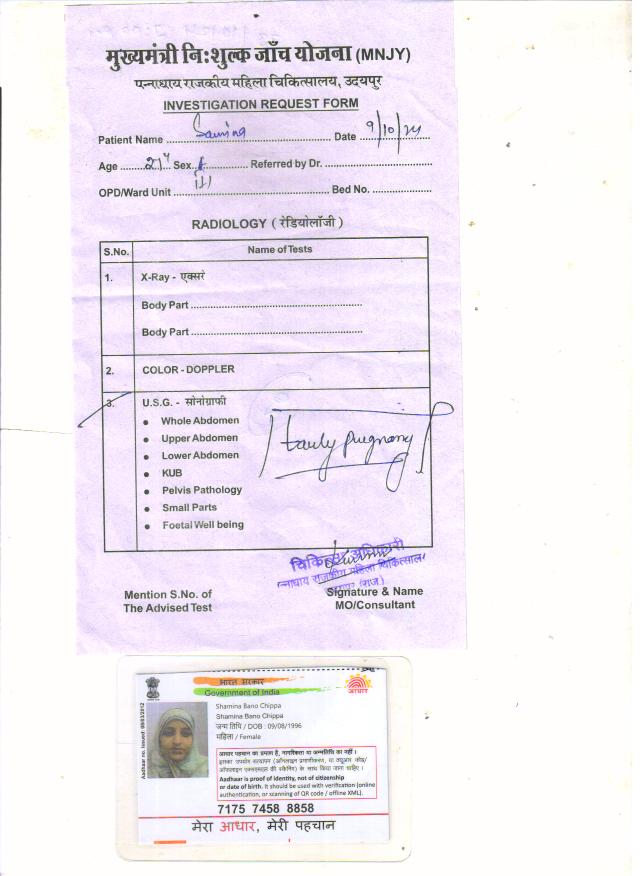 मुख्यमंत्री निःशुल्क जाँच योजना (MNJY)
पन्नाधाय राजकीय महिला चिकित्सालय, उदयपुर
INVESTIGATION REQUEST FORM
Patient Name ........ Date 9/10/24
Age ........ Sex ........ Referred by Dr. ........
OPD/Ward Unit ........ Bed No. ........
RADIOLOGY ( रेडियोलॉजी )
S.No. Name of Tests
1. X-Ray - एक्सरे
Body Part ........
Body Part ........
2. COLOR - DOPPLER
3. U.S.G. - सोनोग्राफी
• Whole Abdomen
• Upper Abdomen
• Lower Abdomen
• KUB
• Pelvis Pathology
• Small Parts
• Foetal Well being
Early pregnancy
चिकित्सा अधिकारी
पन्नाधाय राजकीय महिला चिकित्सालय
उदयपुर (राज.)
Mention S.No. of
The Advised Test
Signature & Name
MO/Consultant
भारत सरकार
Government of India
आधार
Aadhaar no. issued: 08/03/2012
Shamina Bano Chippa
Shamina Bano Chippa
जन्म तिथि / DOB : 09/08/1996
महिला / Female
आधार पहचान का प्रमाण है, नागरिकता या जन्मतिथि का नहीं ।
इसका उपयोग सत्यापन (ऑनलाइन प्रमाणीकरण, या क्यूआर कोड/
ऑफलाइन एक्सएमएल की स्कैनिंग) के साथ किया जाना चाहिए ।
Aadhaar is proof of identity, not of citizenship
or date of birth. It should be used with verification (online
authentication, or scanning of QR code / offline XML).
7175 7458 8858
मेरा आधार, मेरी पहचान